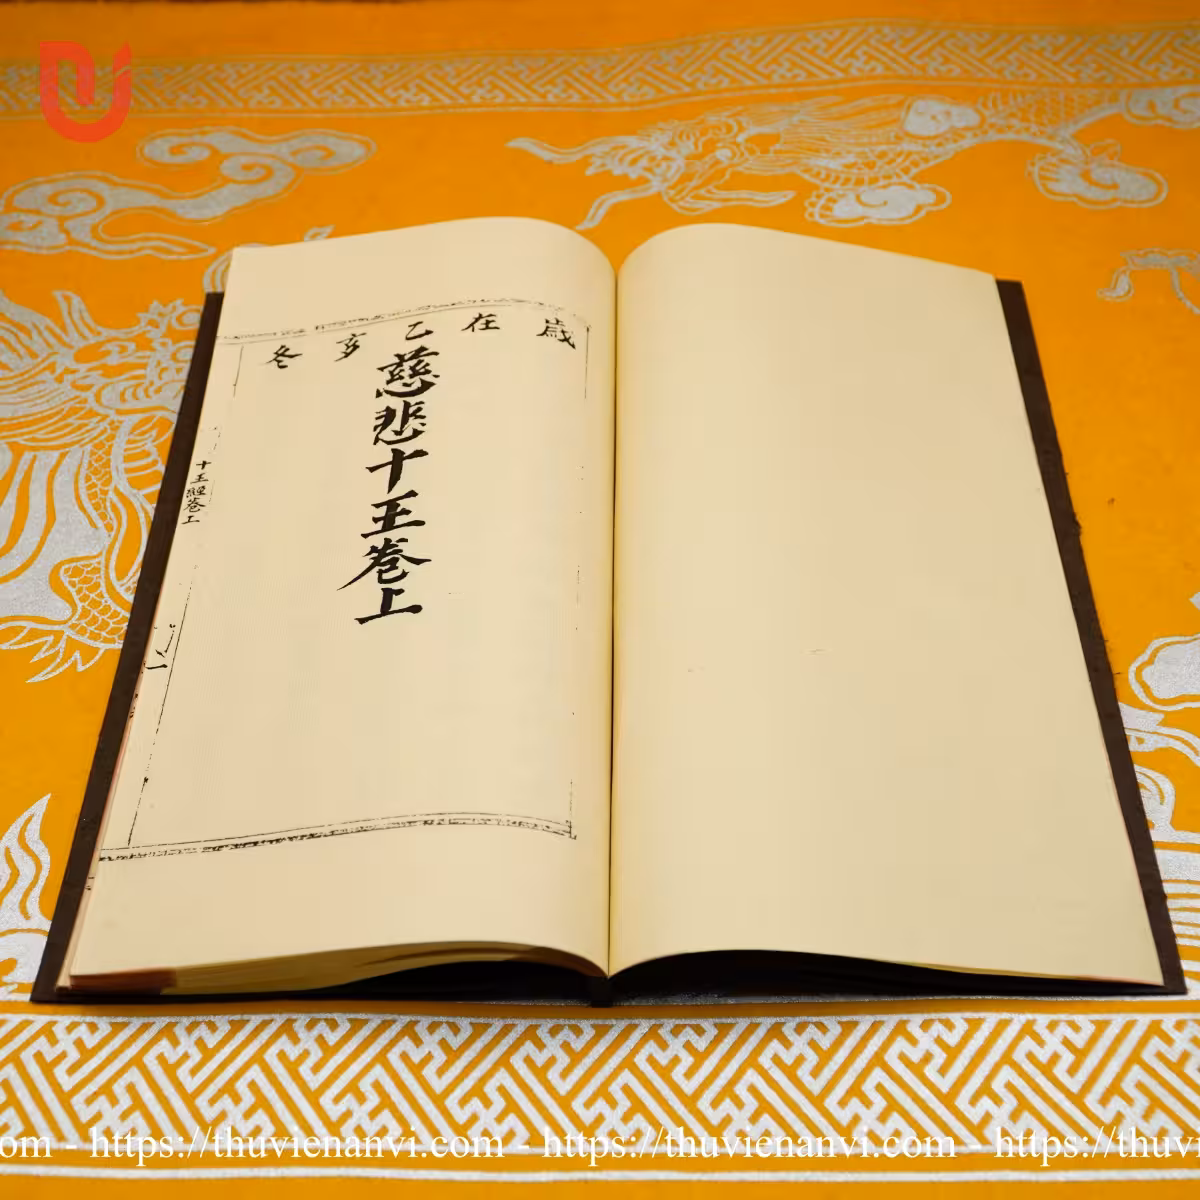 歲在乙亥冬
慈悲十王卷上
十王經卷上
一
https://thuvienanvi.com - https://thuvienanvi.com